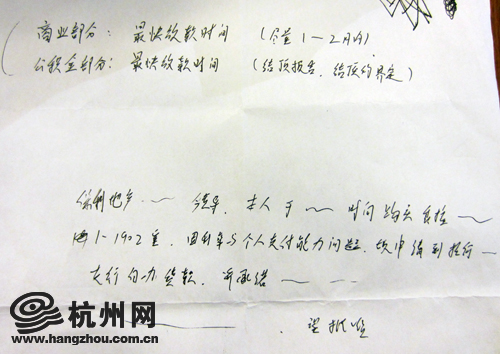 商业部分: 最快放款时间 (尽量1-2月内)
公积金部分: 最快放款时间 (结顶报告、结顶约界定)
保利地产 ~ 领导, 本人于 ~ 时间购买 ~
1-1902室, 因利率与个人支付能力问题, 申请到招行
支行自办贷款, 并承诺
望批准
杭州网
www.hangzhou.com.cn